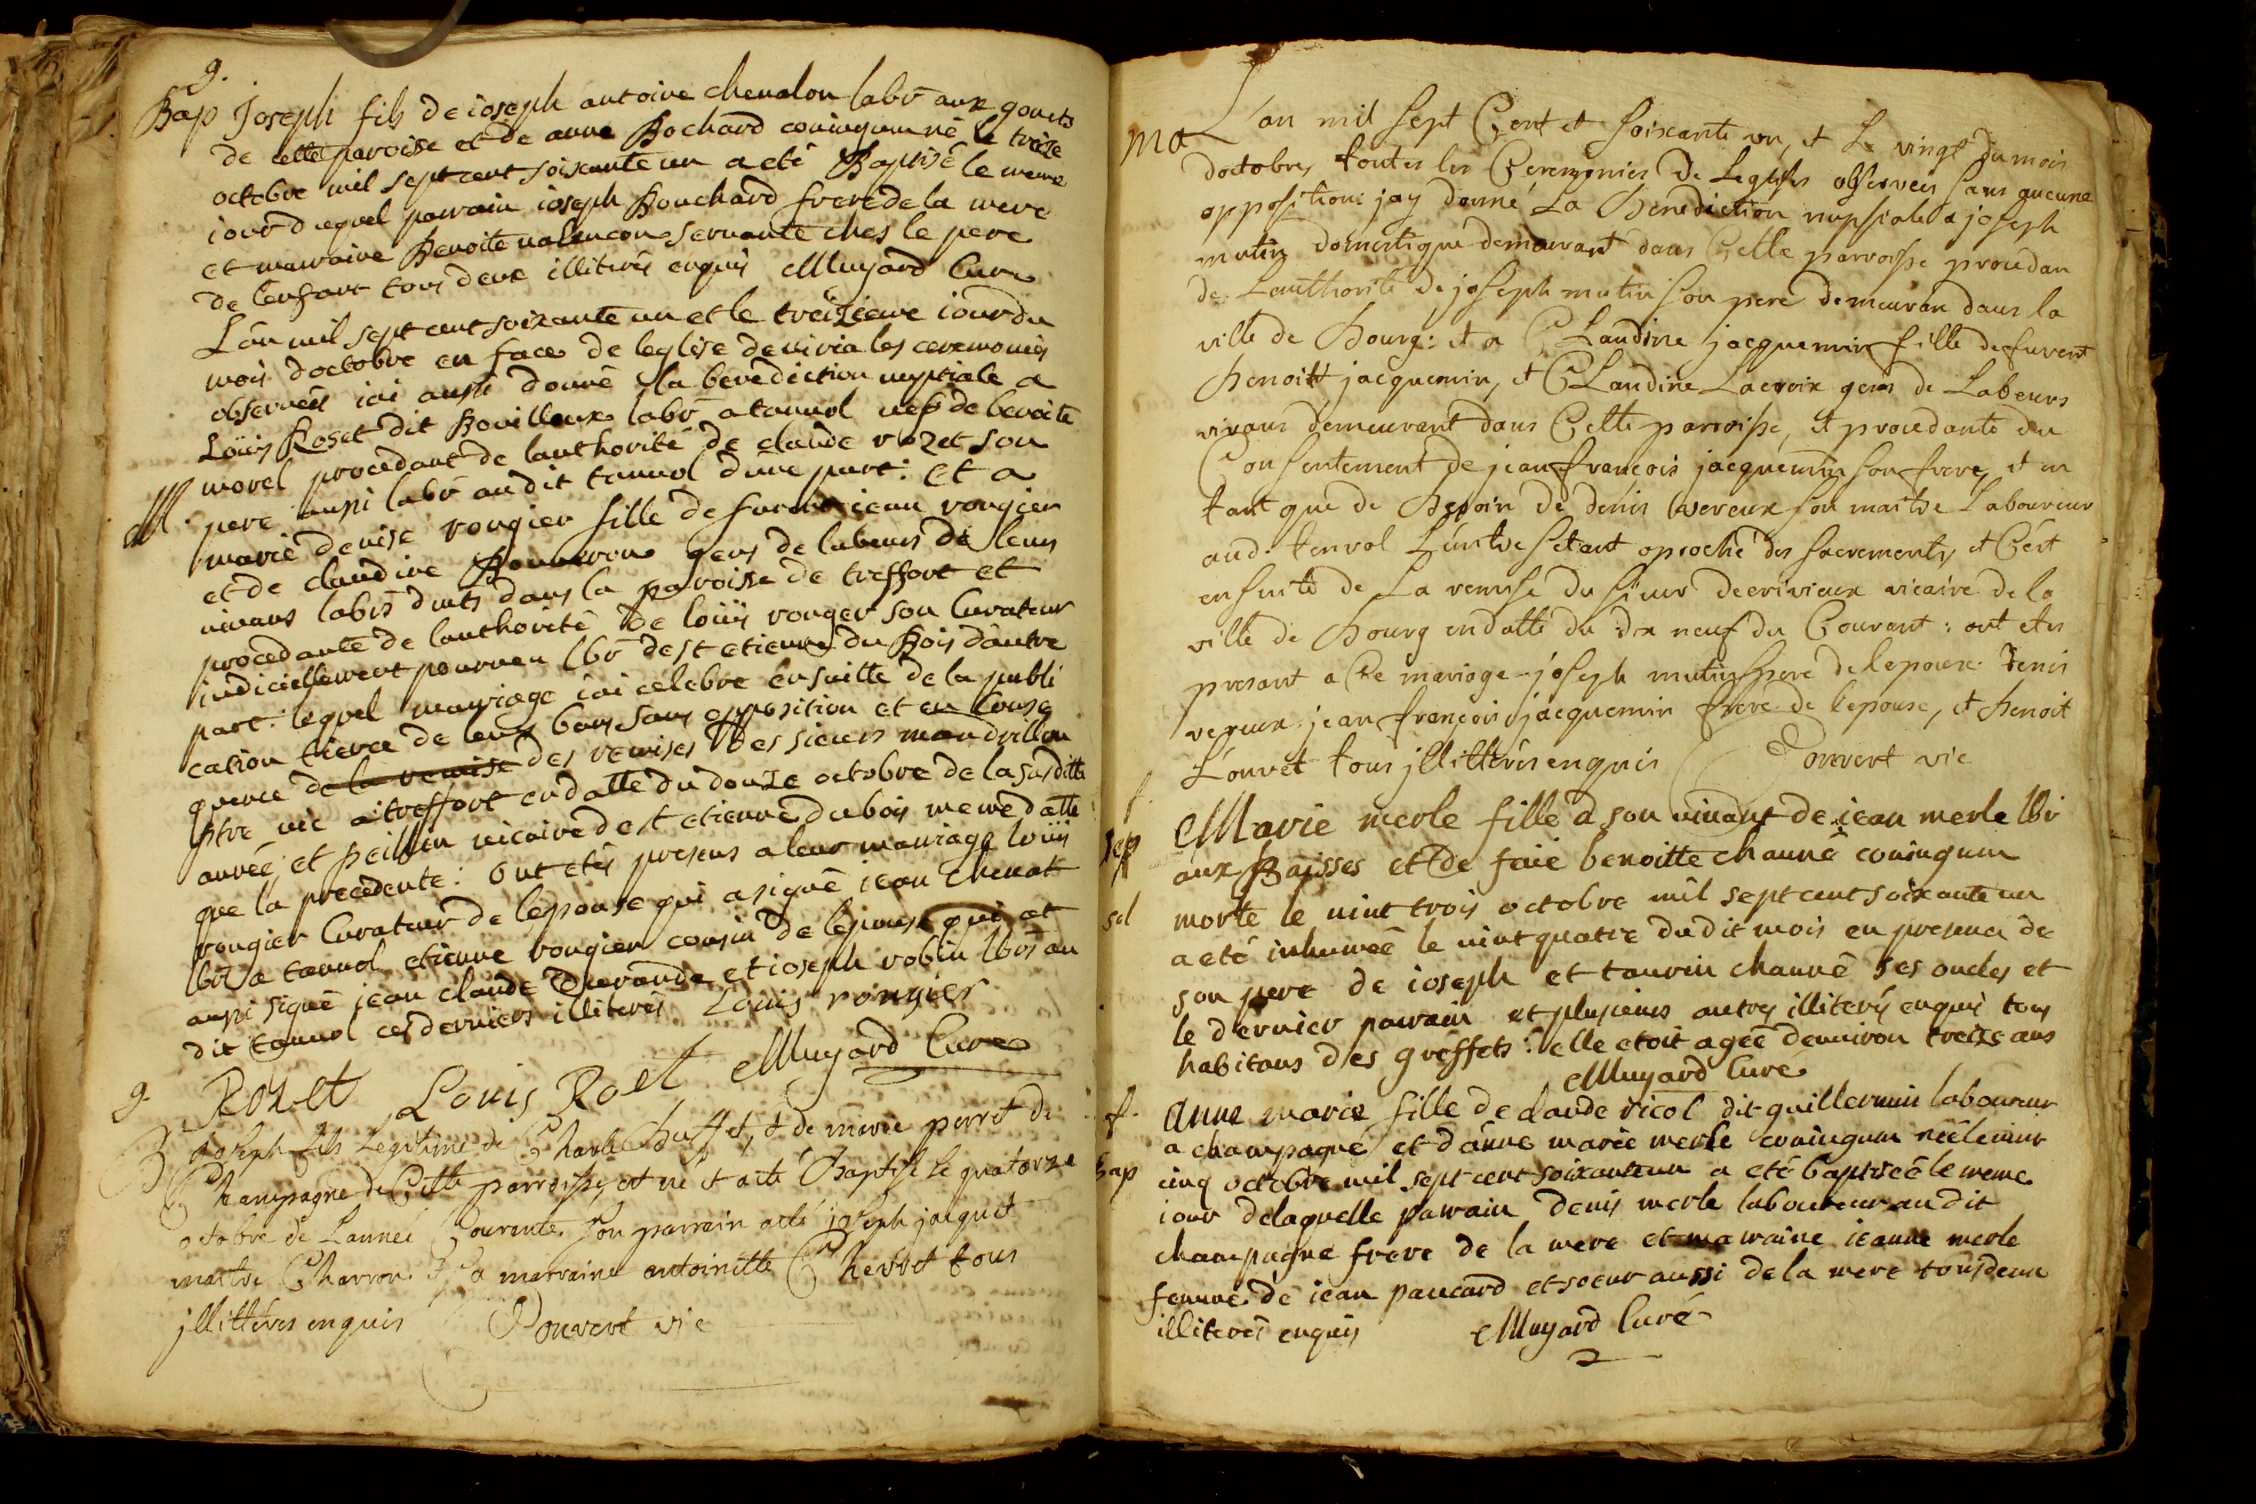 g.
Bap Joseph fils de ioseph antoine chevalon labr aux gouets
de cette paroisse et de anne Bochard coniugum né le treize
octobre mil sept cent soixante un a eté Baptisé le meme
iour duquel parrain ioseph Bouchard frere de la mere
et marraine Benoite valençon servante ches le pere
de l'enfant tous deux illiterés enquis Muyard Curé
L'an mil sept cent soixante un et le treizieme iour du
mois d'octobre en face de leglise de viria les ceremonies
observées iai aussi donné la benediction nuptiale a
Loüis Roset dit Bouilloux labr a tanvol de benoite
morel procedant de lauthorité de claude rozet son
M. pere aussi labr au dit tanvol d'une part: et a
marie denise rougier fille de jean rougier
et de claudine gens de labeurs de leur
vivans labrs dans la paroisse de treffort et
procedante de lauthorité de loüis rouger son Curateur
judiciellement pourveu lbr de st etienne du Bois d'autre
part: lequel mariage iai celebré ensuitte de la publi
cation tierce de leurs bans sans opposition et en conse
quence de la remise des remises des sieurs mandrillon
ptre vic a treffort en datte du douze octobre de la susditte
année et peillin vicaire de st etienne du bois meme datte
que la precedente: ont etés presens a leur mariage loüis
rougier Curateur de lepouse qui a signé jean chevat
lbr a tanvol etienne rougier cousin de lepouse qui at
aussi signé jean claude Durande et ioseph robin lbrs au
dit tanvol ces derniers illiterés Louis rougier
Rozet Louis Roset Muyard Curé
g.
B joseph fils Legitime de Charle Buffet, et de marie perret de
Champagne de Cette parroisse, est né et a eté Baptisé le quatorze
octobre de Lannéé Courante son parrain a eté joseph jacquet
maitre Charron et sa marraine antoinette Chervet tous
jllitteres enquis Pouvert vic
ma L'an mil sept Cent et soixante un, et Le vingt du mois
doctobre, toutes les Ceremonies de Leglise observees sans aucune
oppositions jay donné La Benediction nupsiale a joseph
mutin domestique demeurant dans Cette parroisse procedan
de Lauthorité de joseph mutin son pere demeuran dans la
ville de Bourg: et a CLaudine jacquemin fille de furent
benoitt jacquemin, et CLaudine Lacroix gens de Labeurs
vivans demeurant dans Cette parroisse, et procedante du
Consentement de jean francois jacquemin son frere, et en
tant que de Besoin de denis vereux son maitre Laboureur
aud. tenvol Lun et s'etant aproché des sacrements, et Cest
ensuite de La remise du sieur decrivieux vicaire de la
ville de Bourg en datté du dix neuf du Courant: ont etes
presant a Ce mariage joseph mutin pere de lepoux. Denis
vereux jean françois jacquemin frere de lepouse, et benoit
Louvet tous jllittérés enquis Pouvert vic
f.
sep Marie merle fille a son vivant de iean merle lbr
aux Baisses et de feüe benoitte chauné coniugum
sol morte le vint trois octobre mil sept cent soixante un
a eté inhumeé le vint quatre du dit mois en presence de
son pere de ioseph et taurin chauné ses oncles et
le dernier parrain et plusieurs autres illiterés enquis tous
habitans des greffets: elle etoit agée denviron treize ans
Muyard Curé
f. Anne marie fille de claude vicol dit guillermin laboureur
a champagne et danne marie merle coniugum néé le vint
bap cinq octobre mil sept cent soixante un a eté baptiseé le meme
iour delaquelle parrain Denis merle laboureur au dit
champagne frere de la mere et marraine ieanne merle
femme de iean pancard et soeur aussi de la mere tous deux
illiterés enquis Muyard Curé